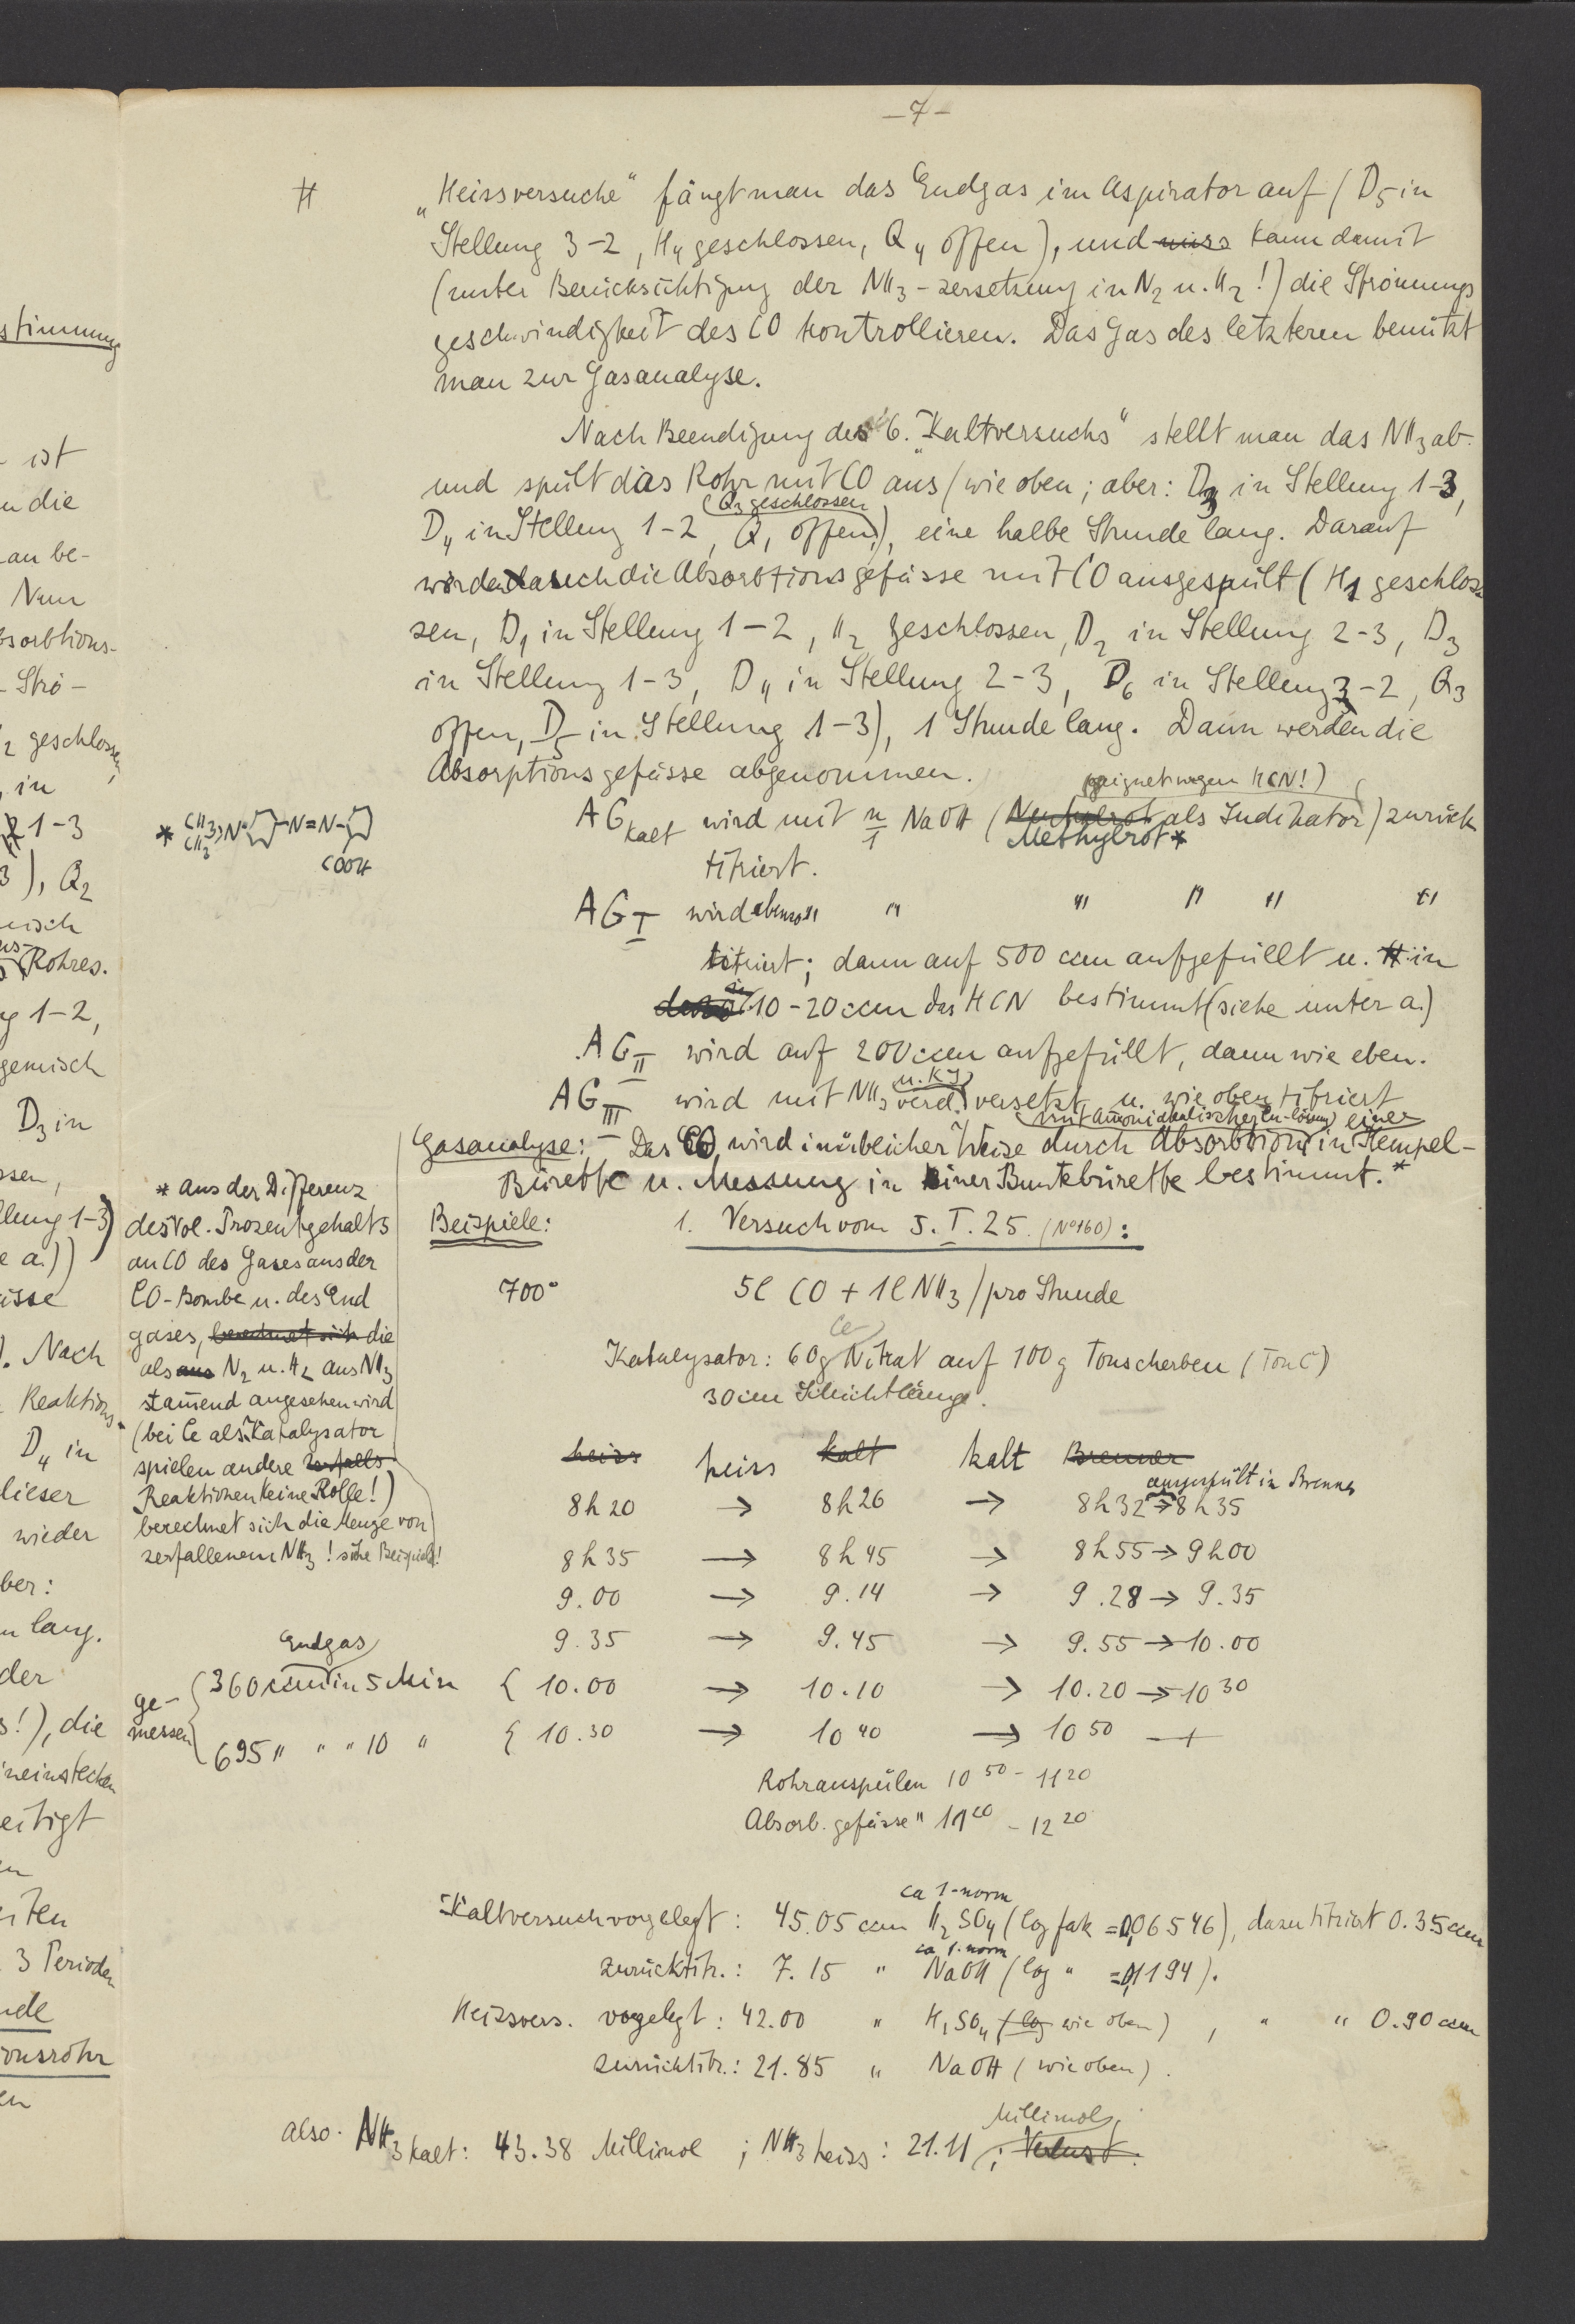 stimmung
ist
die
an be-
Nun
bsorbtions-
Strö-
2 geschlossen,
in
1-3
3), Q2
misch
Rohres.
1-2,
gemisch
D3 in
ssen,
llung 1-3)
e a.))
Nach
Reaktions-
D4 in
dieser
wieder
ber:
lang.
der
s!), die
ineinstecken
eitigt
3 Perioden
onsrohr
-7-
H
„Heissversuche“ fängt man das Endgas im Aspirator auf (D5 in
Stellung 3-2, H4 geschlossen, Q4 offen), und muss kann damit
(unter Berücksichtigung der NH3-zersetzung in N2 u. H2!) die Strömungs
geschwindigkeit des CO kontrollieren. Das Gas des letzteren benützt
man zur Gasanalyse.
Nach Beendigung des 6. „Kaltversuchs“ stellt man das NH3 ab
und spült das Rohr mit CO aus (wie oben; aber: D3 in Stellung 1-3,
(Q3 geschlossen
D4 in Stellung 1-2, Q1 offen), eine halbe Stunde lang. Darauf
werden auch die Absorbtionsgefässe mit CO ausgespült (H1 geschlos
sen, D1 in Stellung 1-2, H2 geschlossen, D2 in Stellung 2-3, D3
in Stellung 1-3, D4 in Stellung 2-3, D6 in Stellung 3-2, Q3
offen, D5 in Stellung 1-3), 1 Stunde lang. Dann werden die
Absorptionsgefässe abgenommen.
(geeignet wegen HCN!)
AG kalt wird mit n/1 NaOH (Neutralrot als Indikator) zurück
Methylrot*
titriert.
* CH3 CH3 >N- -N=N-
COOH
AG I wird ebenso " " " " " "
titriert; dann auf 500 ccm aufgefüllt u. in
10-20 ccm das HCN bestimmt (siehe unter a.)
AG II wird auf 200 ccm aufgefüllt, dann wie eben.
u. KJ
AG III wird mit NH3 verd. versetzt u. wie oben titriert
(mit ammoniakalischer Cu-lösung) einer
Gasanalyse: - Das CO wird in üblicher Weise durch Absorbtion in Hempel-
Bürette u. Messung in einer Buntebürette bestimmt.*
* aus der Differenz
des Vol. Prozentgehalts
an CO des Gases aus der
CO-Bombe u. des End
gases, berechnet sich die
als aus N2 u. H2 aus NH3
stammend angesehen wird
(bei Ce als Katalysator
spielen andere Zerfalls
Reaktionen keine Rolle!)
berechnet sich die Menge von
zerfallenem NH3! siehe Beispiele!
Beispiele: 1. Versuch vom 5. I. 25. (No 160):
700° 5l CO + 1l NH3 / pro Stunde
Ce
Katalysator: 60g Nitrat auf 100 g Tonscherben (Ton C)
30 cm Schichtlänge.
heiss heiss kalt kalt Brenner
ausgespült in Brenner
8h20 → 8h26 → 8h32 → 8h35
8h35 → 8h45 → 8h55 → 9h00
9.00 → 9.14 → 9.28 → 9.35
9.35 → 9.45 → 9.55 → 10.00
Endgas
ge-
messen
360 ccm in 5 Min { 10.00 → 10.10 → 10.20 → 10 30
695 " " " 10 " { 10.30 → 10 40 → 10 50 —+
Rohrausspülen 10 50 - 11 20
Absorb. gefässe " 11 20 - 12 20
ca 1-norm
Kaltversuch vorgelegt: 45.05 ccm H2SO4 (log fak = 0,06546), dazu titriert 0.35 ccm
ca 1-norm
zurücktitr.: 7.15 " NaOH (log " = 0,1194).
Heissvers. vorgelegt: 42.00 " H2SO4 (log wie oben), " " 0.90 ccm
zurücktitr.: 21.85 " NaOH (wie oben).
Millimol
also. NH3 kalt: 43.38 Millimol ; NH3 heiss: 21.11 ; Verlust.